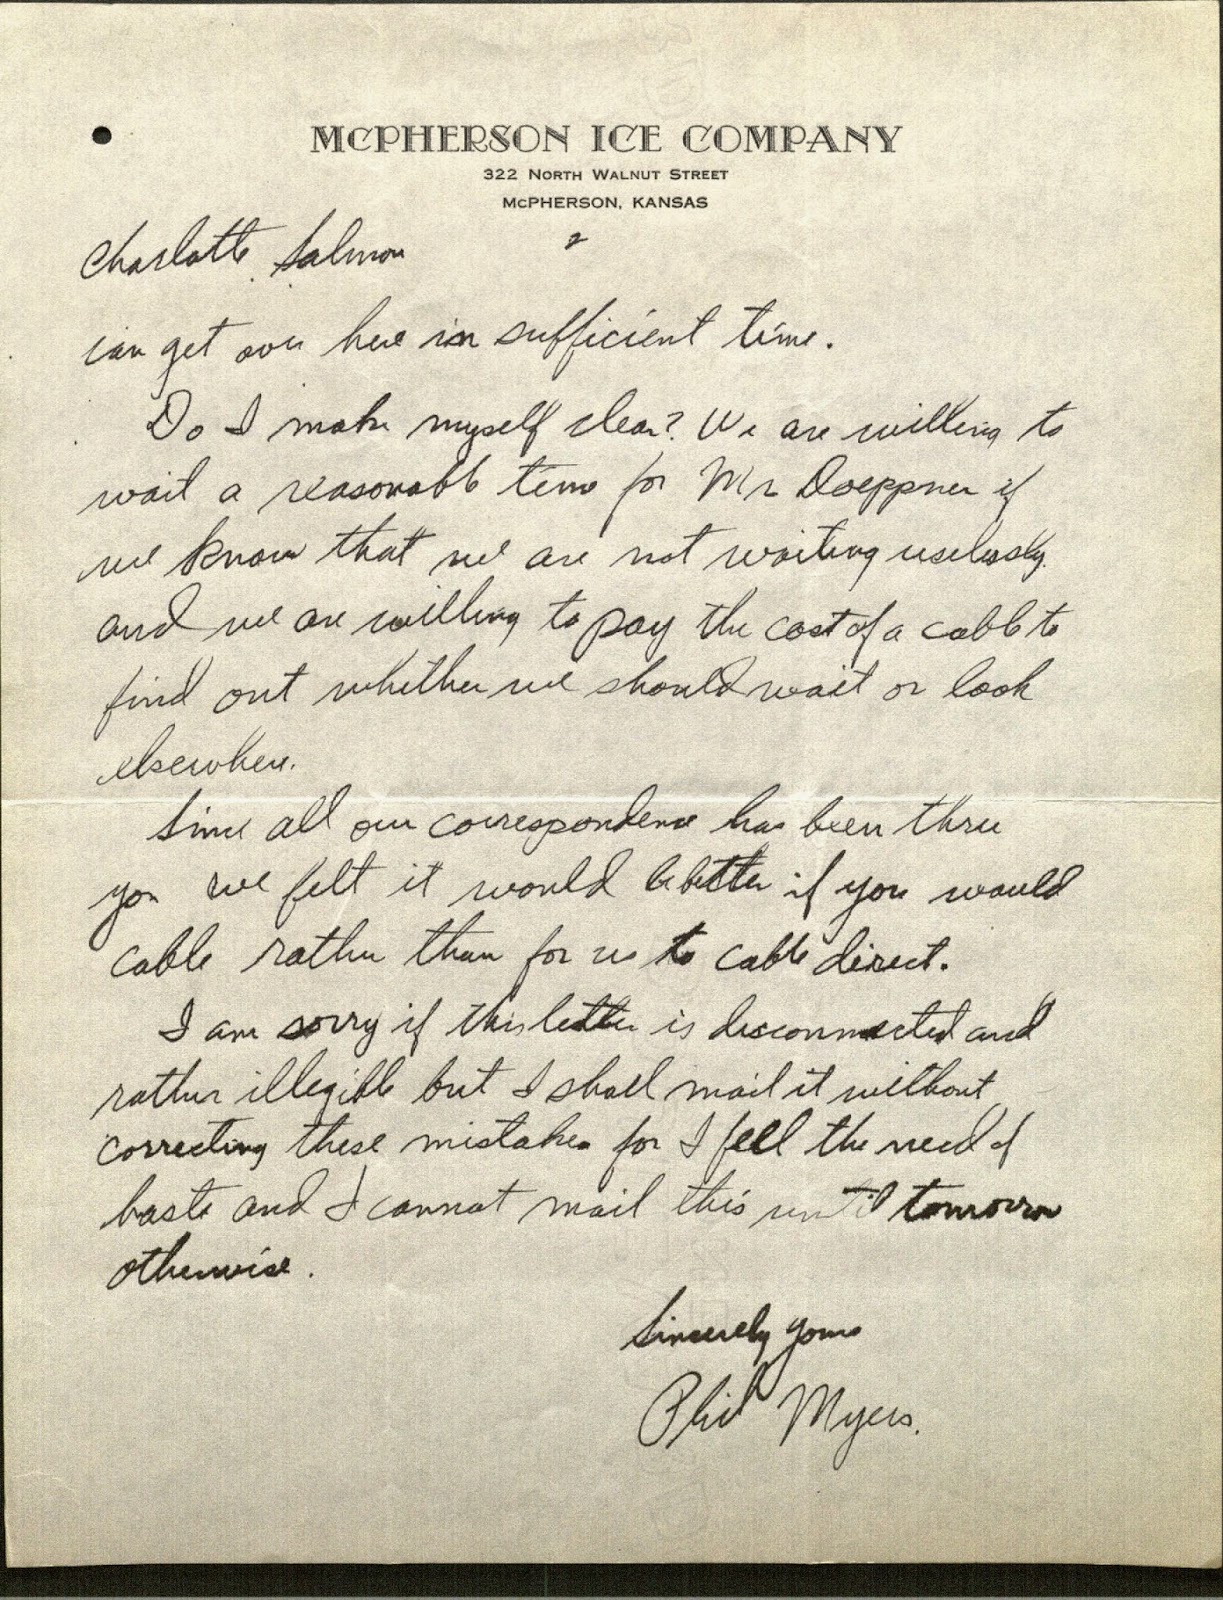 McPHERSON ICE COMPANY
322 NORTH WALNUT STREET
McPHERSON, KANSAS
2
Charlotte Salmon
can get over here in sufficient time.
Do I make myself clear? We are willing to
wait a reasonable time for Mr Doeppner if
we know that we are not waiting uselessly.
and we are willing to pay the cost of a cable to
find out whether we should wait or look
elsewhere.
Since all our correspondence has been thru
you we felt it would be better if you would
cable rather than for us to cable direct.
I am sorry if this letter is disconnected and
rather illegible but I shall mail it without
correcting these mistakes for I feel the need of
haste and I cannot mail this until tomorrow
otherwise.
Sincerely yours
Phil Myers.